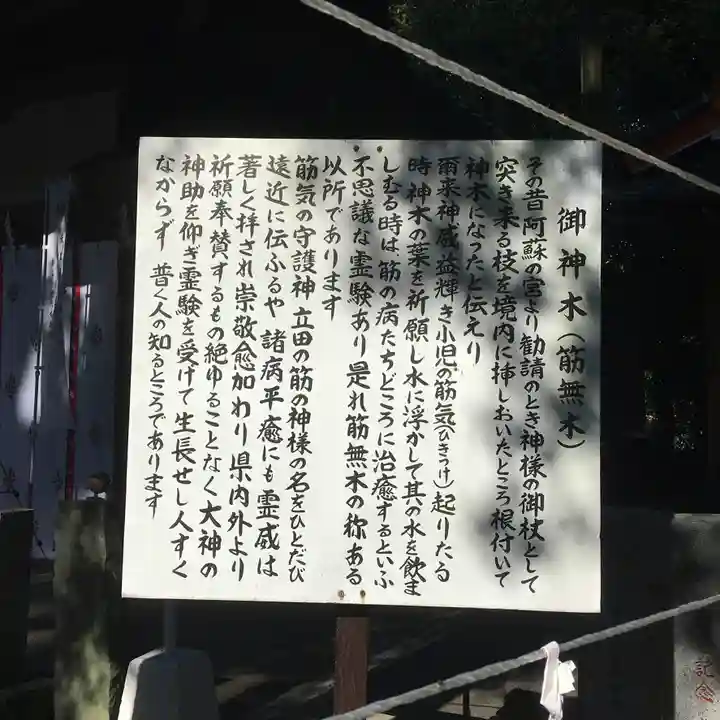 御神木(筋無木)
その昔阿蘇の宮より勧請のとき神様の御杖として
突き来る枝を境内に挿しおいたところ根付いて
神木になったと伝えり
爾来神威益輝き小児の筋気(ひきつけ)起りたる
時神木の葉を祈願し水に浮かして其の水を飲ま
しむる時は、筋の病たちどころに治癒するといふ
不思議な霊験あり是れ筋無木の称ある
以所であります
筋気の守護神立田の筋の神様の名をひとたび
遠近に伝ふるや諸病平癒にも霊威は
著しく拝され崇敬愈加わり県内外より
祈願奉賛するもの絶ゆることなく大神の
神助を仰ぎ霊験を受けて生長せし人すく
なからず普く人の知るところであります
記念